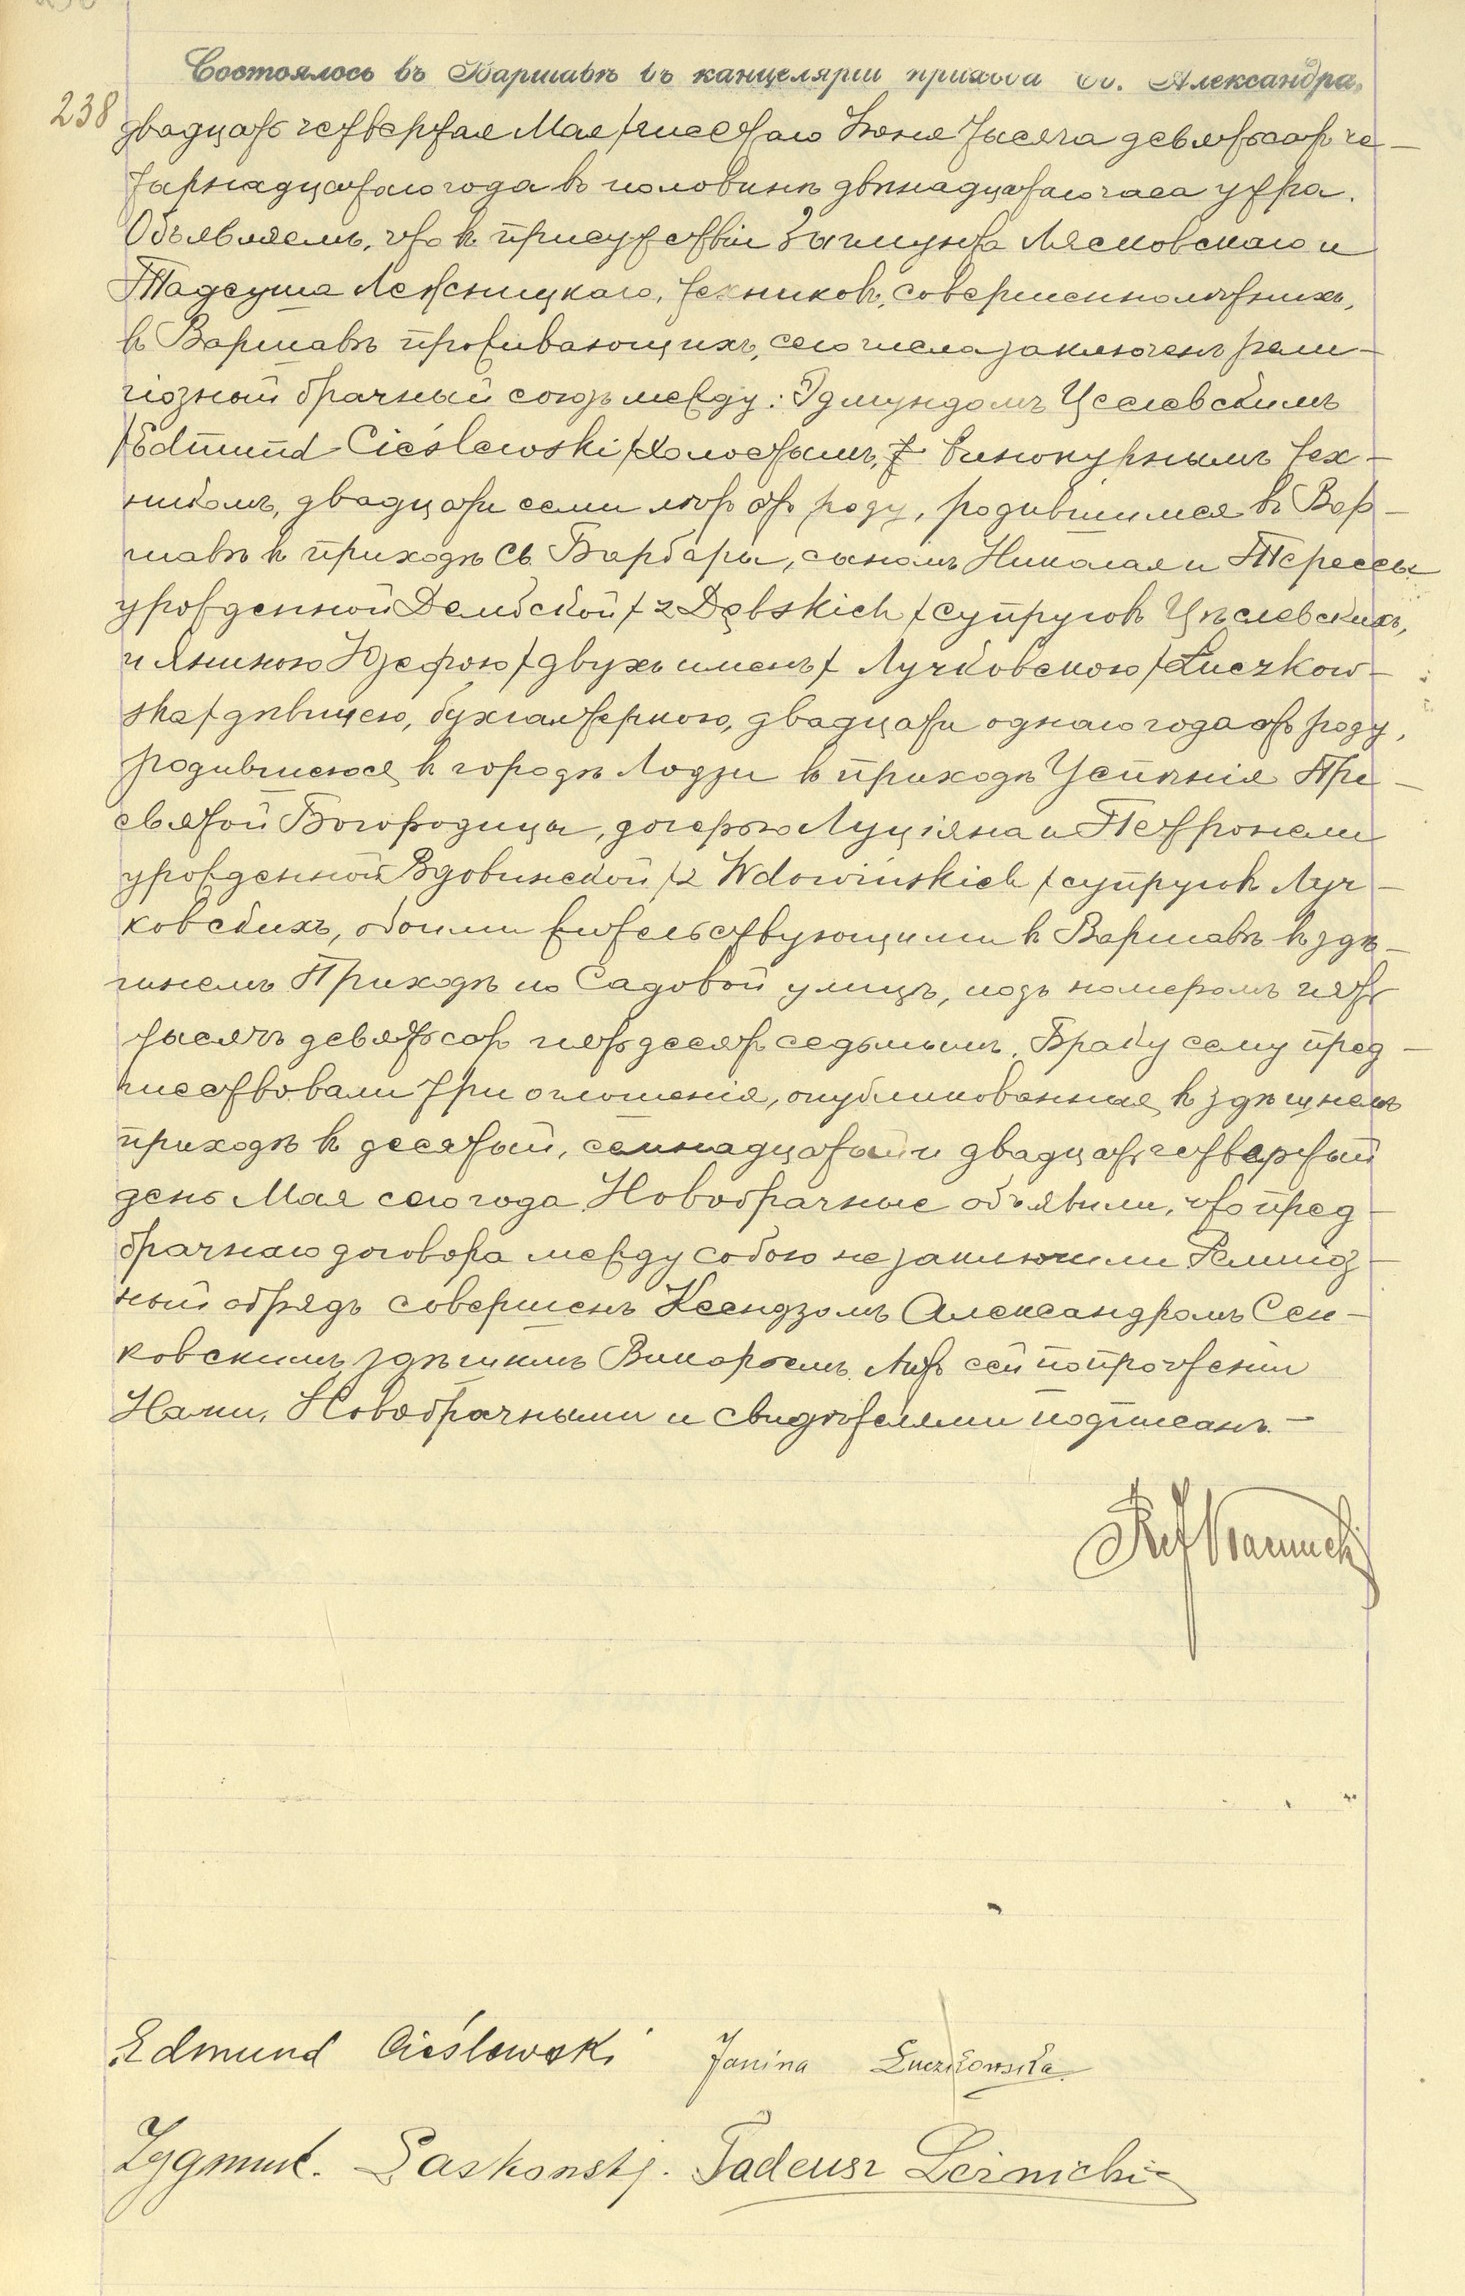 Состоялось въ Варшавѣ въ канцеляріи прихода Св. Александра,
238
двадцать четвертая Мая /шестаго Іюня тысяча девятьсотъ че-
тырнадцатаго года въ половинѣ двѣнадцатаго часа утра.
Объявляемъ, что въ присутствіи Зыгмунта Лясковскаго и
Тадеуша Лежницкаго, техниковъ, совершеннолѣтнихъ,
въ Варшавѣ проживающихъ, сего числа заключенъ рели-
гіозный брачный союзъ между: Эдмундомъ Цеслевскимъ
/Edmund Cieślewski/ холостымъ, винокурнымъ тех-
никомъ, двадцати семи лѣтъ отъ роду, родившимся въ Вар-
шавѣ въ приходѣ Св. Барбары, сыномъ Николая и Терессы
урожденной Дембской /z Dębskich/ супруговъ Цѣслевскихъ,
и Яниною Юзефою /двухъ именъ/ Лучковскою /Łuczkow-
ska/ дѣвицею, бухгалтеркою, двадцати одного года отъ роду,
родившеюся въ городѣ Лодзи въ приходѣ Успѣнія Пре-
святой Богородицы, дочерью Луціяна и Петронели
урожденной Вдовинской /z Wdowińskich/ супруговъ Луч-
ковскихъ, обоими жительствующими въ Варшавѣ въ здѣ-
шнемъ Приходѣ по Садовой улицѣ, подъ номеромъ пять
тысячъ девятьсотъ пятьдесятъ седьмымъ. Браку сему пред-
шествовали три оглошенія, опубликованныя въ здѣшнемъ
приходѣ въ десятый, семнадцатый и двадцать четвертый
день Мая сего года. Новобрачные объявили, что пред-
брачнаго договора между собою не заключили Религіоз-
ный обрядъ совершенъ Ксендзомъ Александромъ Сен-
ковскимъ здѣшнимъ Викаріемъ. Актъ сей по прочтеніи
Нами, Новобрачными и свидѣтелями подписанъ. -
Edmund Cieślewski Janina Łuczkowska
Zygmunt. Laskowski. Tadeusz Leżnicki